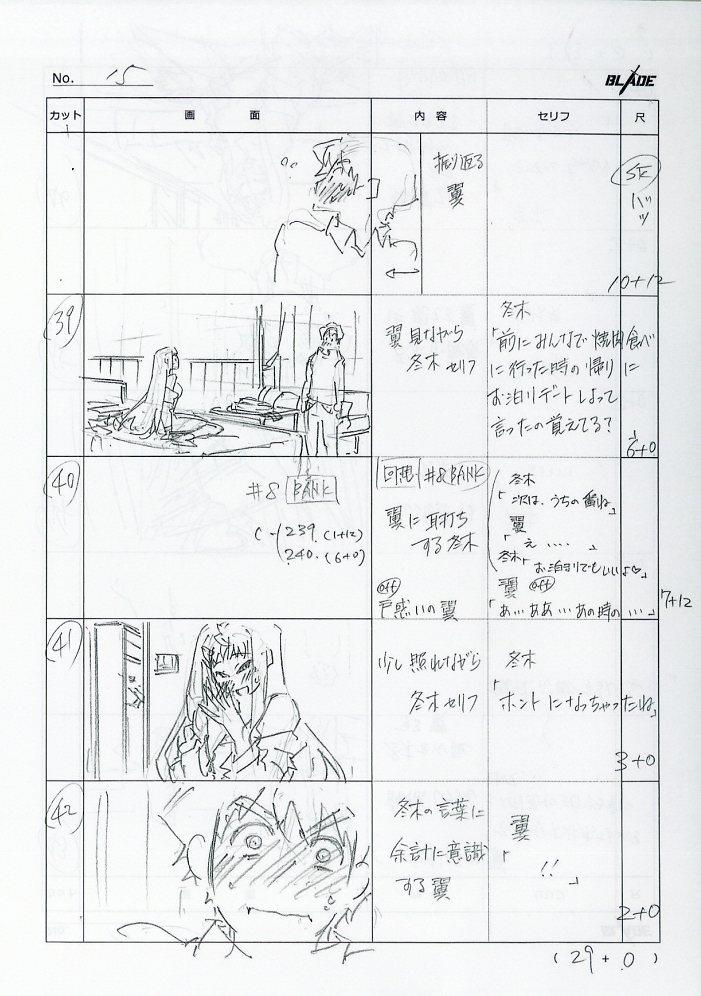 No. 15
BLADE
カット 画面 内容 セリフ 尺
振り返る
翼
SE
バッ
10+12
39
翼見ながら
冬木セリフ
冬木
「前にみんなで焼肉食べ
に行った時の帰りに
お泊りデートしよって
言ったの覚えてる?
6+0
40
#8 BANK
C-239. (1+12)
240. (6+0)
回想 #8 BANK
翼に耳打ち
する冬木
off
戸惑いの翼
冬木
「次は、うちの番ね」
翼
「え....」
冬木「お泊りでもいいよ♡」
翼 off
「あ…ああ…あの時の…」
7+12
41
少し照れながら
冬木セリフ
冬木
「ホントになっちゃったね」
3+0
42
冬木の言葉に
余計に意識
する翼
翼
「!!」
2+0
(29+0)